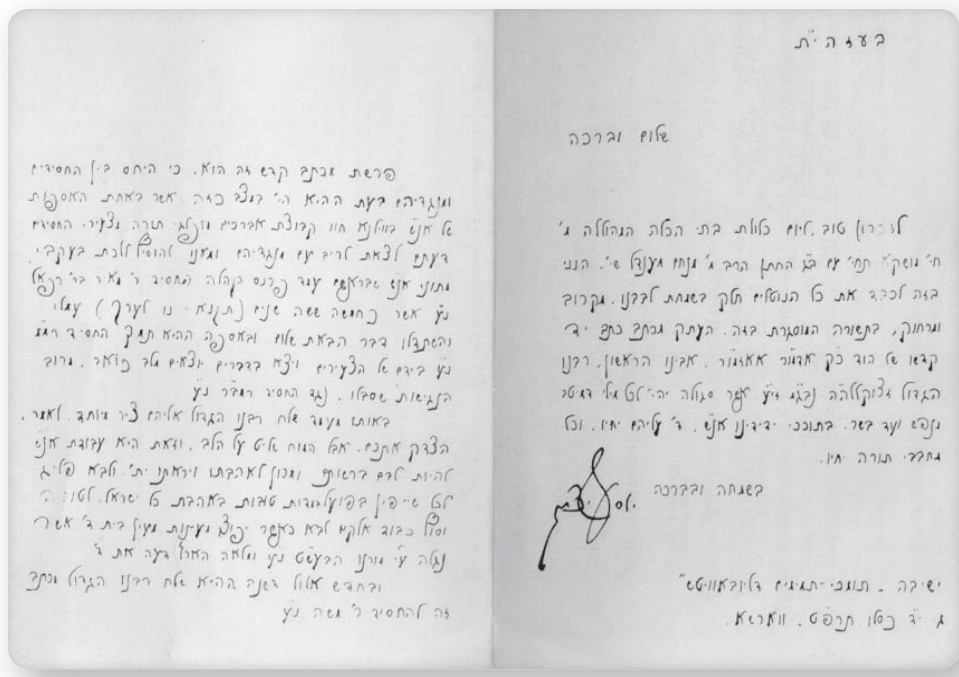 בעזה״ת
שלום וברכה
לזכרון טוב, ליום כלולת בתי הכלה המהוללה מ׳
חי׳ מושקא תחי׳ עם ב״ג החתן הרב מ׳ מנחם מענדל שי׳, הנני
בזה לכבד את כל הנוטלים חלק בשמחת לבבנו, מקרוב
ומרחוק, בתשורה המוסגרת בזה, העתק מכתב כתב יד
קדשו של הוד כ״ק אדמו״ר אאזמו״ר, אבינו הראשון, רבנו
הגדול זצוקללה״ה נבג״מ זי״ע אשר סגולה יהי׳ לכל מילי דמיטב
מנפש ועד בשר, בתוככי ידידינו אנ״ש, ד׳ עליהם יחיו, וכל
מחבבי תורה יחיו.
בשמחה ובברכה
יוסף יצחק
ישיבה - תומכי-תמימים דליובאוויטש״
ג׳ י״ד כסלו תרפ״ט, ווארשא.
פרשת מכתב קדש זה הוא, כי היחס בין החסידים
ומנגדיהם בעת ההיא הי׳ במצב כזה, אשר באחת האספות
של אנ״ש בווילנא חוו קבוצת אברכים מופלגי תורה מצעירי החסידים
דעתם לצאת לריב עם מנגדיהם ומאנו להוסיף ללכת בעקבי
מתוני אנ״ש שבראשם עמד פרנס הקהלה החסיד ר׳ מאיר בר׳ רפאל
נ״ע אשר כחמשה ששה שנים (תקנ״א - נו לערך) עמלו
והשתדלו דבר הבאת שלום ובאספה ההיא תמך החסיד
נ״ע בידם של הצעירים ויצא בדברים יוצאים מלב כואב, מרוב
הנגישות שסבלו, נגד החסיד רמב״ר נ״ע
באותו מעמד שלח רבנו הגדול אליהם ציר מיוחד, לאמר,
הצדק אתכם, אבל המוח שליט על הלב, וזאת היא עבודת אנ״ש
להיות לבם ברשותם ומכוון לאהבתו ויראתו ית׳, ולבא פליג
לכל שייפין בפועל ומדות טובות באהבת כל ישראל, לטובה
וסוף כבוד אלקים לבא כאשר יפוצו מעינות מעין בית ד׳ אשר
נגלה ע״י מורנו הבעש״ט נ״ע ומלאה הארץ דעה את ד׳
ובחדש אלול דשנה ההיא שלח רבנו הגדול מכתב
זה להחסיד ר׳ משה נ״ע